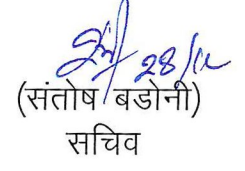 28/12
(संतोष बडोनी)
सचिव